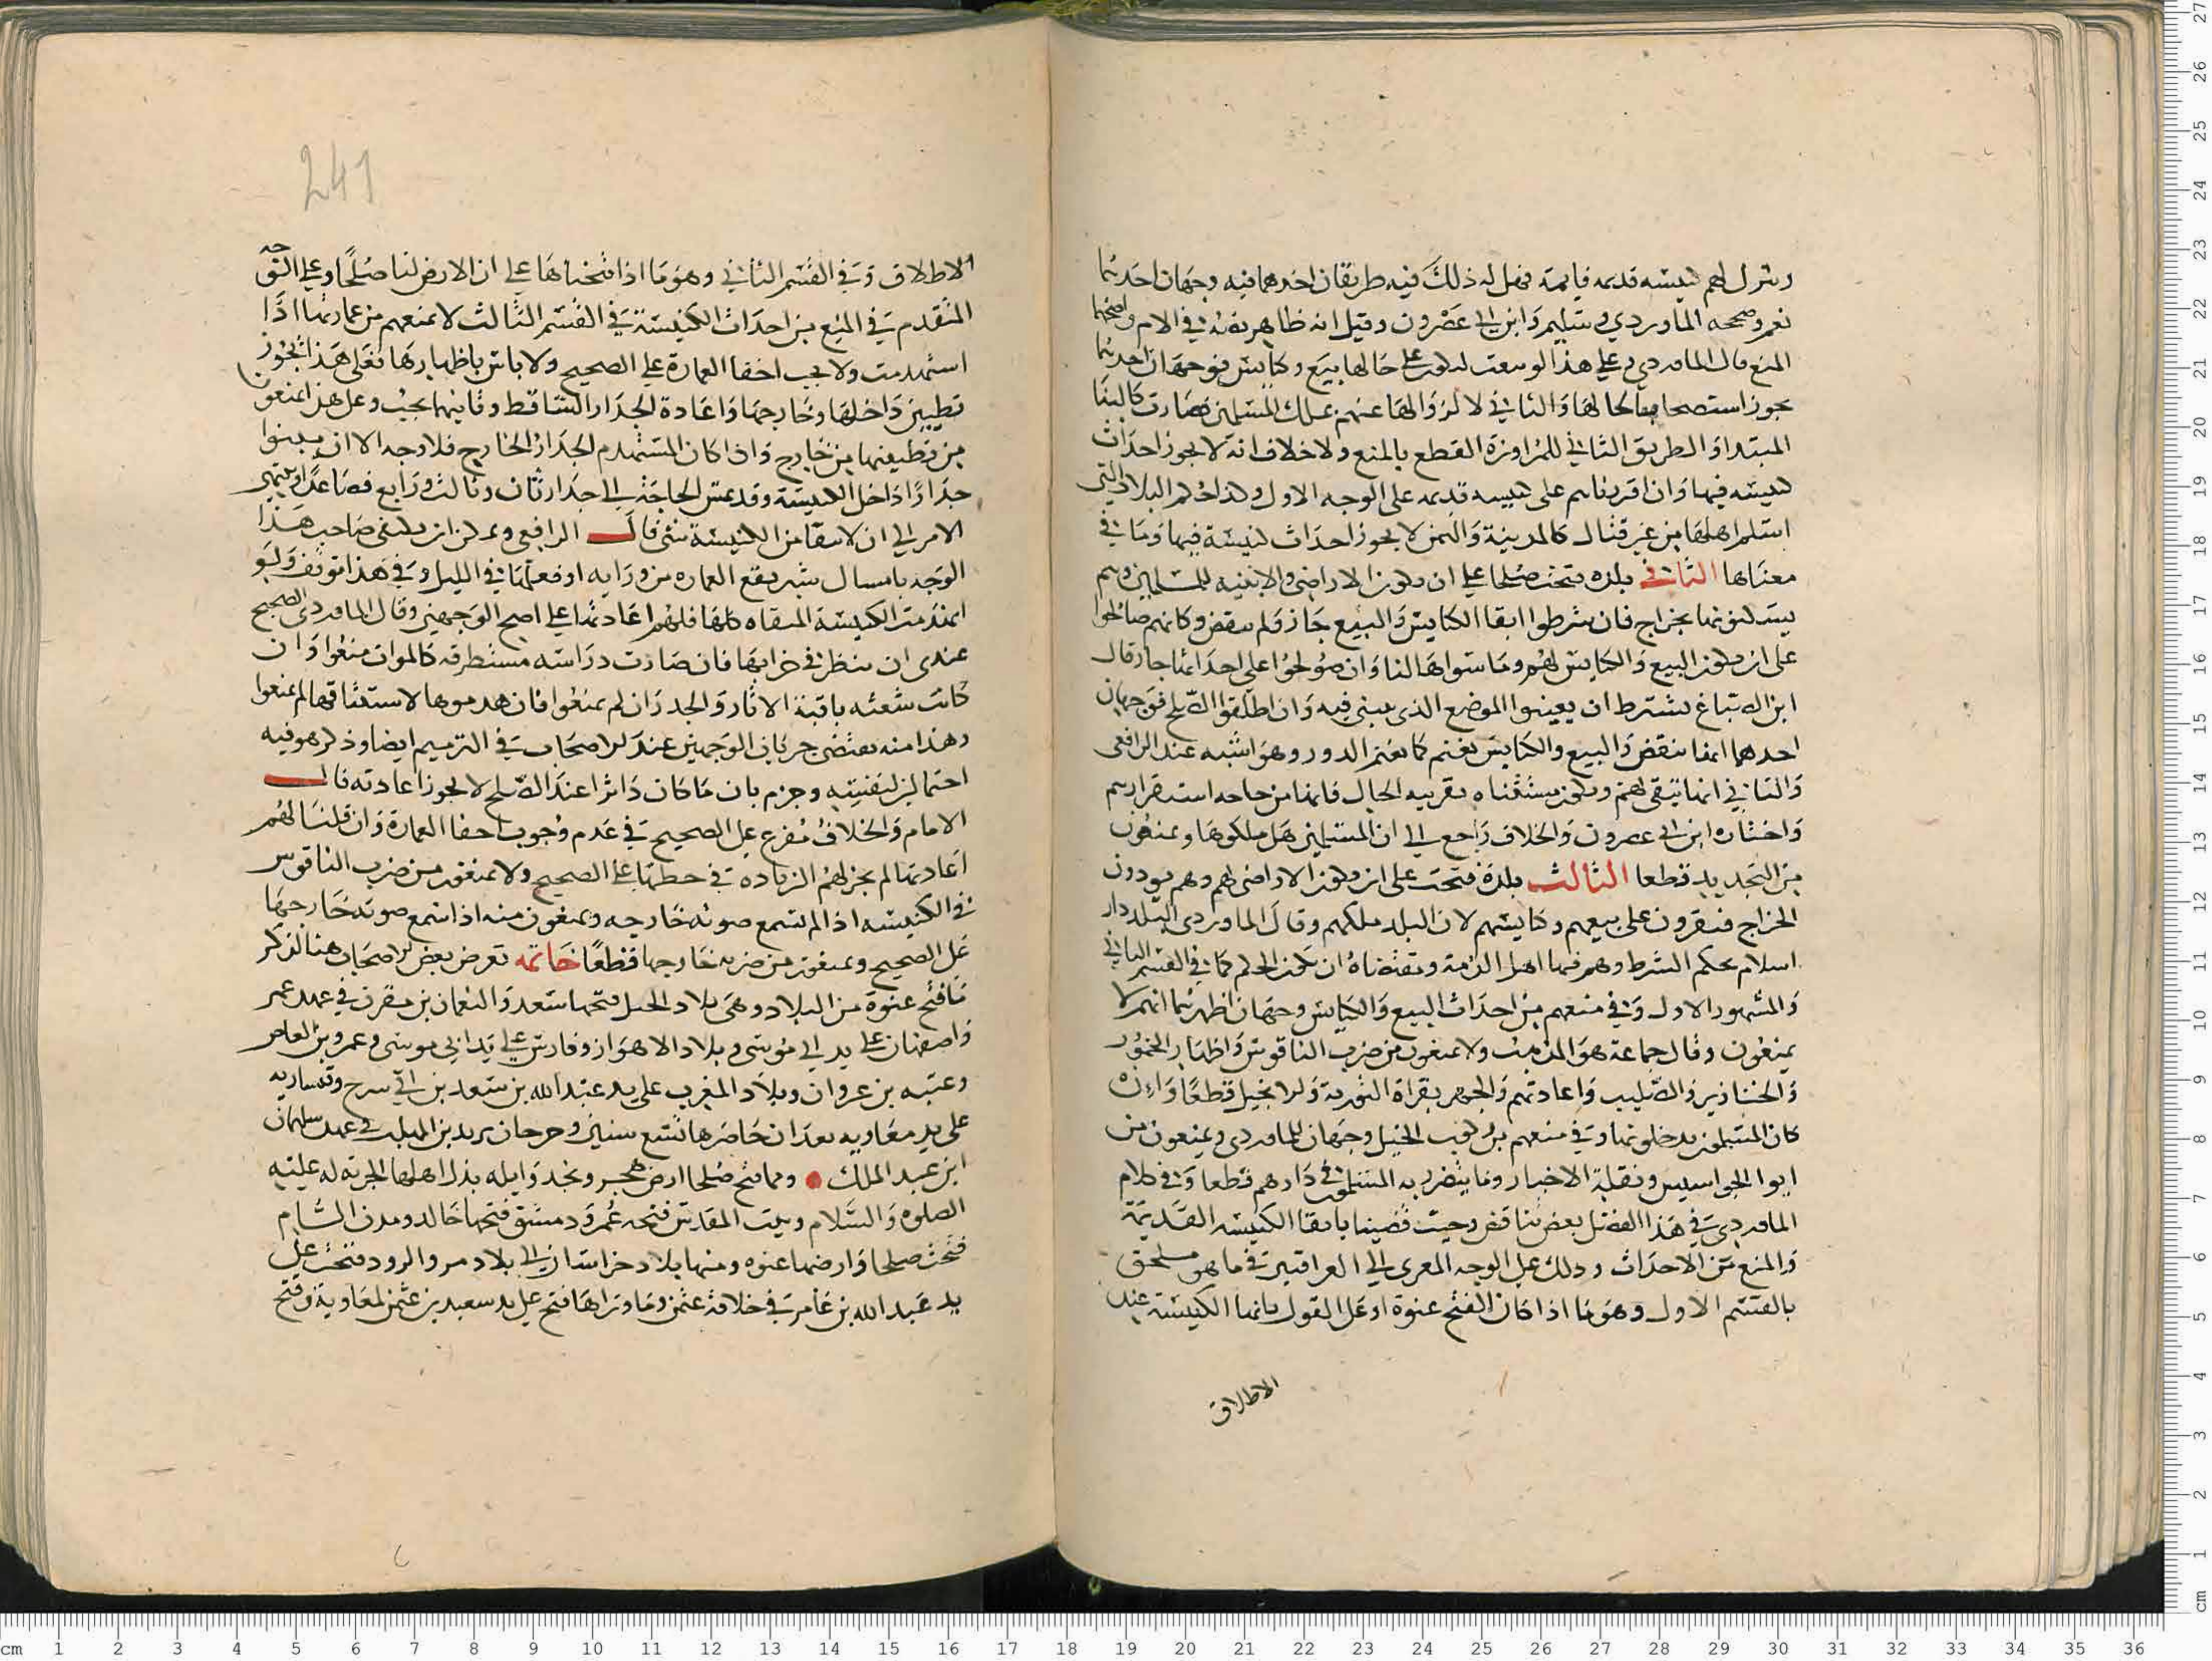 ويترك لهم كنيسة قديمة قايمة فهل له ذلك فيه طريقان احدهما فيه وجهان احدهما
نعم وصححه الماوردي وسليم وابن ابي عصرون وقيل انه ظاهر نصه في الام واصحهما
المنع قال الماوردي وعلى هذا لو بيعت لتكون على حالها بيع وكنايس فوجهان احدهما
يجوز استصحابا لحالها والثاني لا لزوالها عنهم بملك المسلمين فصارت كالبنا
المبتدا والطريق الثاني للمراوزة القطع بالمنع ولا خلاف انه لا يجوز احداث
كنيسة فيها وان اقررناهم على كنيسة قديمة على الوجه الاول وكذا حكم البلاد التي
استلم اهلها من غير قتال كالمدينة واليمن لا يجوز احداث كنيسة فيها وما في
معناها الثاني بلدة فتحت صلحا على ان تكون الاراضي والابنية للمسلمين وهم
يسكنونها بخراج فان شرطوا ابقا الكنايس والبيع جاز ولم ينقض وكانهم صالحوا
على ان تكون البيع والكنايس لهم وما سواها لنا وان صولحوا على احداثها جاز قال
ابن الصباغ يشترط ان يعينوا الموضع الذي يبنى فيه وان اطلقوا الصلح فوجهان
احدهما انها تنقض والبيع والكنايس تغنم كما تغنم الدور وهو اشبه عند الرافعي
والثاني انها تبقى لهم وتكون مستثناه بقرينه الحال فانها من حاجه استقرارهم
واختاره ابن ابي عصرون والخلاف راجع الى ان المسلمين هل ملكوها ويمنعون
من التجديد قطعا الثالث بلدة فتحت على ان تكون الاراضي لهم وهم يودون
الخراج فيقرون على بيعهم وكنايسهم لان البلد ملكهم وقال الماوردي البلد دار
اسلام بحكم الشرط وهم فيها اهل الذمة ومقتضاه ان يكون الحكم كما في القسم الثاني
والمشهور الاول وفي منعهم من احداث البيع والكنايس وجهان اظهرهما انهم لا
يمنعون وقال جماعة هو المذهب ولا يمنعون من ضرب الناقوس واظهار الخمور
والخنازير والصليب واعادتهم والجهر بقراة التورية والانجيل قطعا وان
كان المسلمون يدخلونها وفي منعهم من ركوب الخيل وجهان للماوردي ويمنعون من
ايوا الجواسيس ونقلة الاخبار وما يتضرر به المسلمون في دارهم قطعا وفي كلام
الماوردي في هذا الفصل بعض تناقض وحيث قضينا بابقا الكنيسة القديمة
والمنع من الاحداث وذلك على الوجه المعزى الى العراقيين في ما هو ملحق
بالقسم الاول وهو ما اذا كان الفتح عنوة او على القول بانها الكنيسة عند
الاطلاق
241
الاطلاق وفي القسم الثاني وهو ما اذا فتحناها على ان الارض لنا صلحا وعلى الوجه
المتقدم في المنع من احداث الكنيسة في القسم الثالث لا نمنعهم من عمارتها اذا
استهدمت ولا يجب اخفا العمارة على الصحيح ولا باس باظهارها فعلى هذا يجوز
تطيين داخلها وخارجها واعادة الجدار الساقط وثانيهما يجب وعلى هذا يمنعون
من تطيينها من خارج واذا كان المستهدم الجدار الخارج فلا وجه الا ان يبنوا
جدارا داخل الكنيسة وقد تمس الحاجة الى جدار ثان وثالث ورابع فصاعدا وينتهي
الامر الى ان لا يبقا من الكنيسة شي قال الرافعي ويمكن ان يكتفي صاحب هذا
الوجه باسبال ستر يقع العمارة من ورايه او فعلها في الليل وفي هذا توقف ولو
انهدمت الكنيسة المبقاه كلها فلهم اعادتها على اصح الوجهين وقال الماوردي الصحيح
عندي ان ينظر في خرابها فان صارت دراسه مستطرقة كالموات منعوا وان
كانت شعثة باقية الاثار والجدران لم يمنعوا فان هدموها لاستيثاقها لم يمنعوا
وهذا منه يقتضي جريان الوجهين عند الاصحاب في الترميم ايضا وذكر هو فيه
احتمالين لنفسه وجزم بان ما كان داثرا عند الصلح لا يجوز اعادته قال
الامام والخلاف مفرع على الصحيح في عدم وجوب اخفا العمارة وان قلنا لهم
اعادتها لم يجز لهم الزيادة في خطتها على الصحيح ولا يمنعون من ضرب الناقوس
في الكنيسة اذا لم تسمع صوته خارجه ويمنعون منه اذا سمع صوته خارجها
على الصحيح ويمنعون من ضربه خارجها قطعا خاتمه تعرض بعض الاصحاب هنا لذكر
ما فتح عنوة من البلاد وهي بلاد الجبل فتحها سعد والنعمان بن مقرن في عهد عمر
واصفهان على يد ابي موسى وبلاد الاهواز وفارس على يد ابي موسى وعمرو بن العاص
وعتبه بن غزوان وبلاد المغرب على يد عبد الله بن سعد بن ابي سرح وقيساريه
على يد معاويه بعد ان حاصرها تسع سنين وجرجان يزيد بن المهلب في عهد سليمان
ابن عبد الملك ومما فتح صلحا ارض هجر ونجد وايله بذل اهلها الجزيه له عليه
الصلوه والسلام وبيت المقدس فتحه عمر ودمشق فتحها خالد ومدن الشام
فتحت صلحا وارضها عنوه ومنها بلاد خراسان الى بلاد مرو الرود فتحت على
يد عبد الله بن عامر في خلافة عثمن وما وراها فتح على يد سعيد بن عثمن لمعاوية وفتح